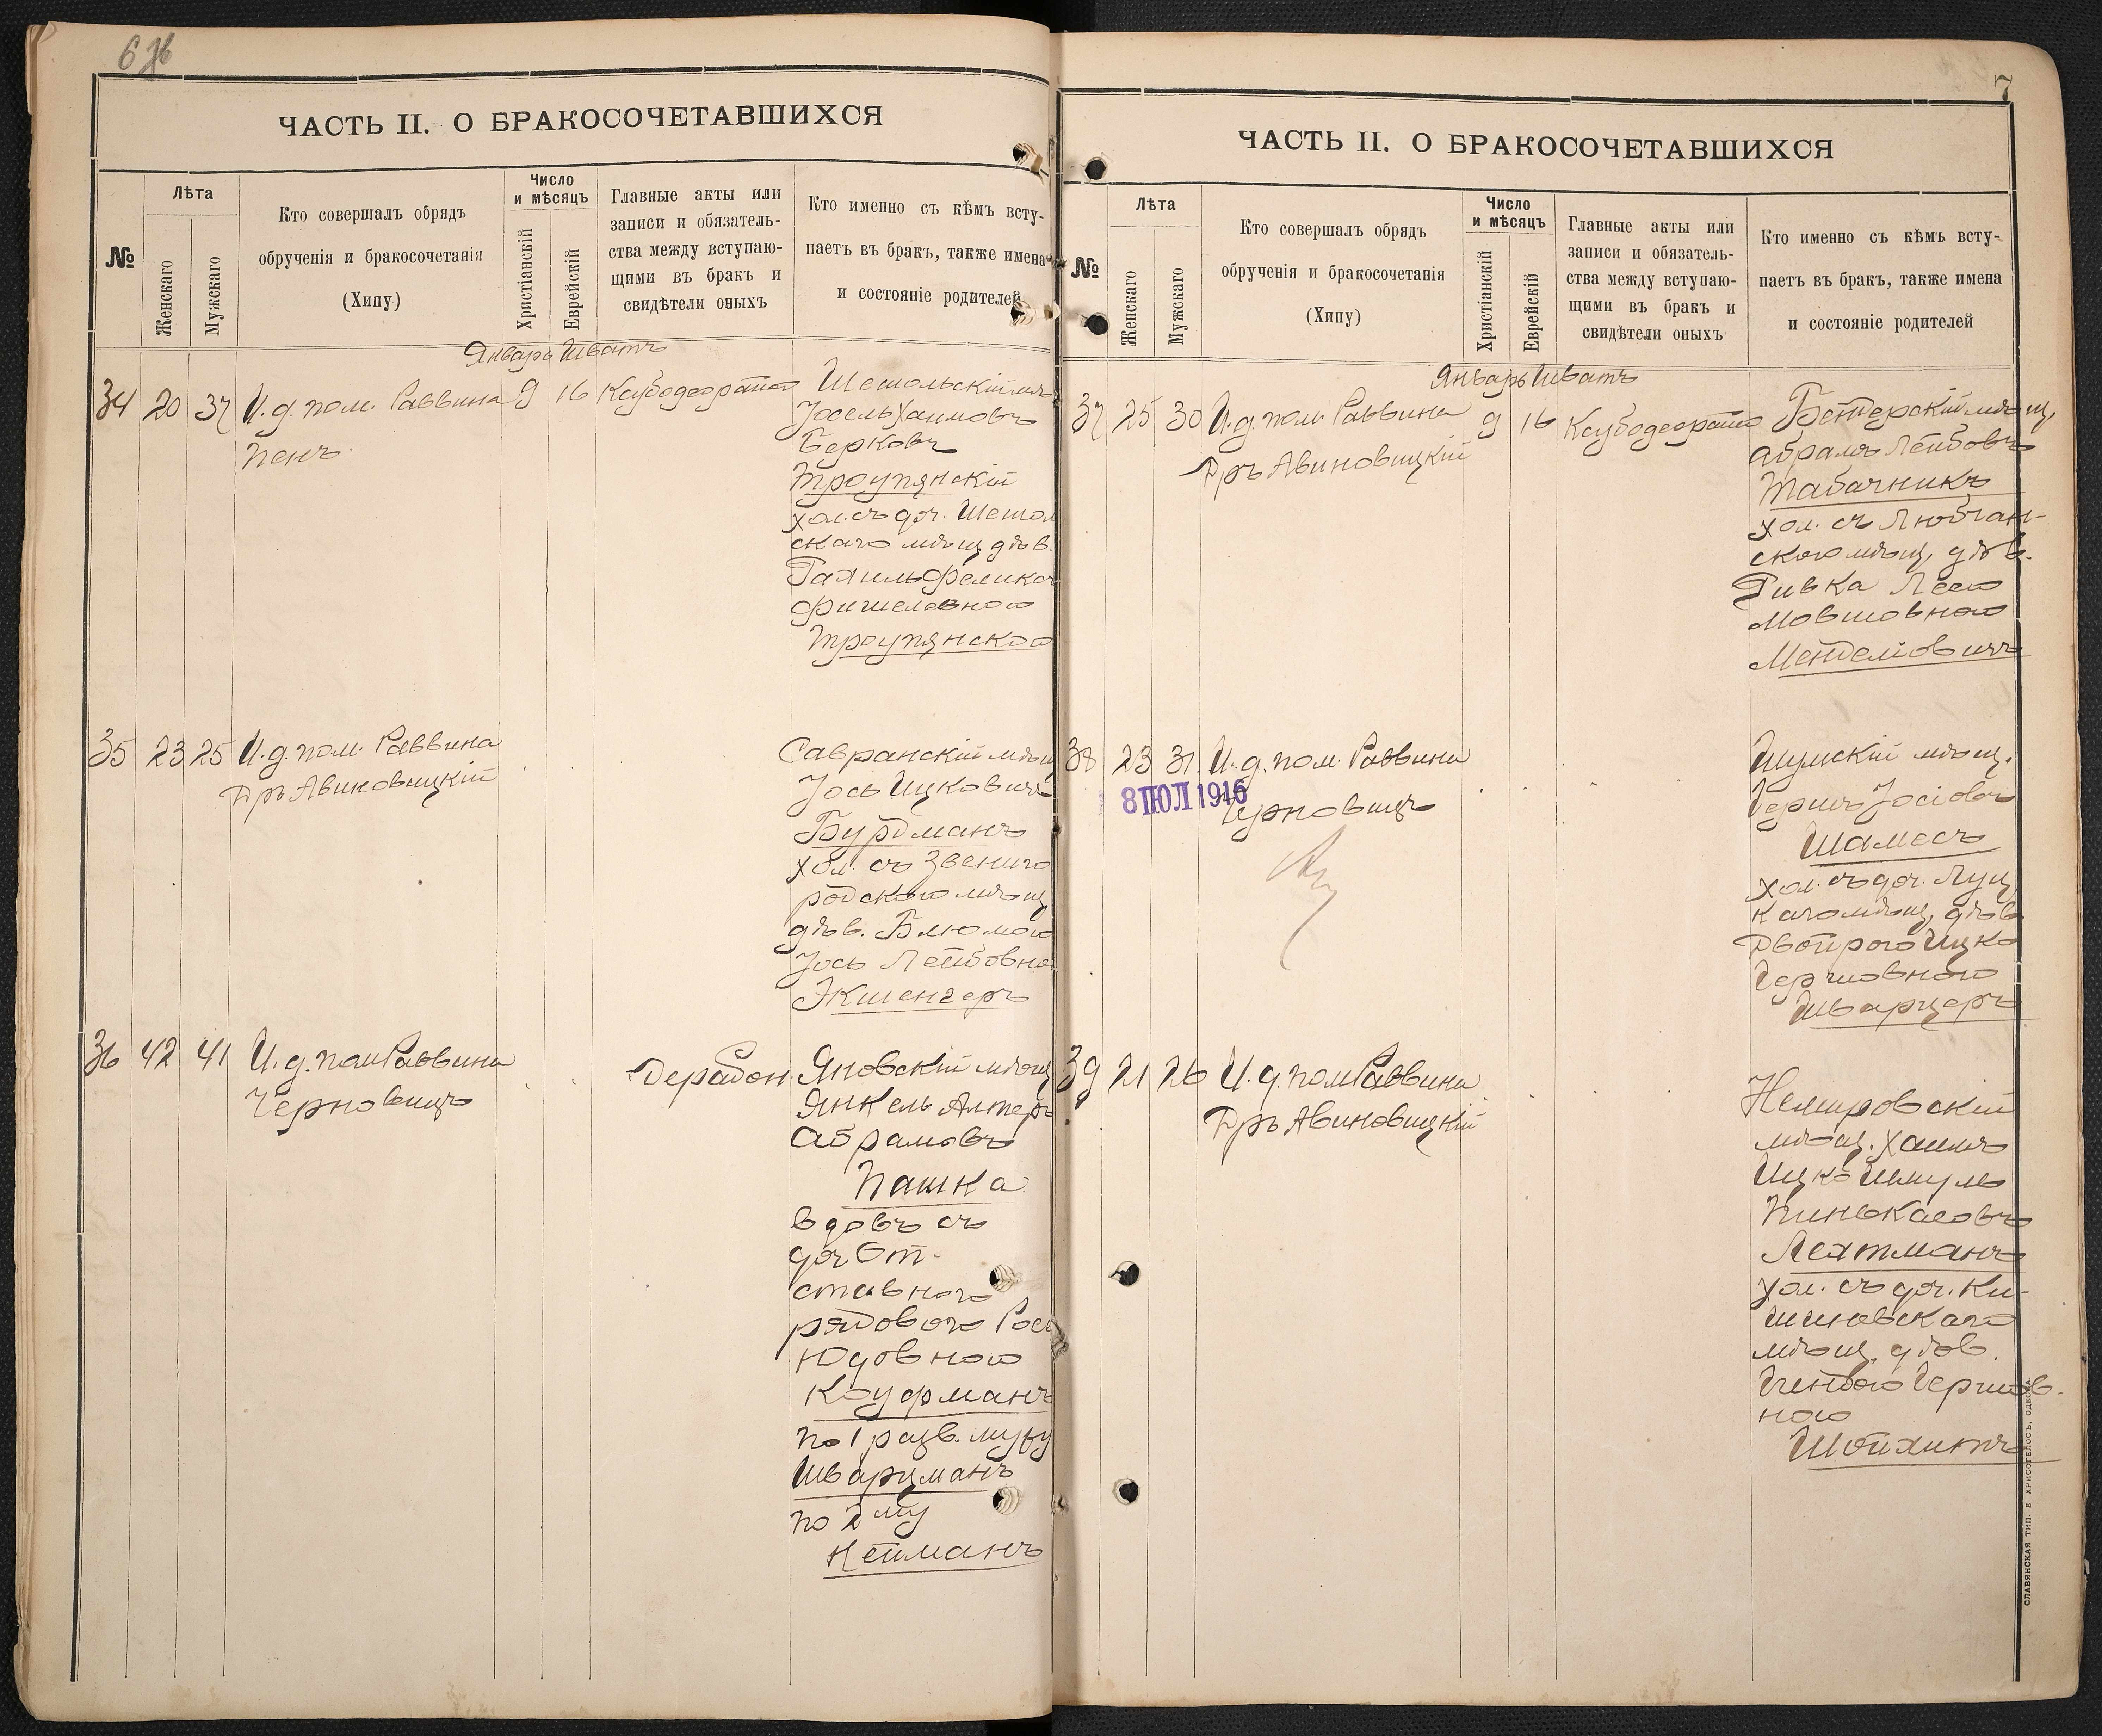 6
ЧАСТЬ II. О БРАКОСОЧЕТАВШИХСЯ
№
Лѣта
Женскаго
Мужскаго
Кто совершалъ обрядъ
обрученія и бракосочетанія
(Хипу)
Число
и мѣсяцъ
Христіанскій
Еврейскій
Главные акты или
записи и обязатель-
ства между вступаю-
щими въ бракъ и
свидѣтели оныхъ
Кто именно съ кѣмъ всту-
паетъ въ бракъ, также имена
и состояніе родителей
Январь Шватъ
34 20 37 И.д. пом. Раввина 9 16
Пенъ
Іосель Хаимовъ
Берковъ
Троупянскій
хол. съ доч.
скаго мѣщ. дѣв.
Рахиль
Фишелевною
Троупянскою
35 23 25 И.д. пом. Раввина
Д-ръ Авиновицкій
Савранскій мѣщ
Іось Ицковичъ
Бурдманъ
хол. съ Звениго
родскою мѣщ
дѣв. Блюмою
Іось Лейбовно
Экшенгеръ
36 42 41 И.д. пом Раввина
Черновицъ
Яновскій мѣщ
Янкель Алтеръ
Абрамовъ
Пашка
вдовъ съ
доч. От-
ставного
рядового
Юдовною
Кауфманъ
по 1 разв. мужу
Шварцманъ
по 2 му
Нейманъ
7
ЧАСТЬ II. О БРАКОСОЧЕТАВШИХСЯ
№
Лѣта
Женскаго
Мужскаго
Кто совершалъ обрядъ
обрученія и бракосочетанія
(Хипу)
Число
и мѣсяцъ
Христіанскій
Еврейскій
Главные акты или
записи и обязатель-
ства между вступаю-
щими въ бракъ и
свидѣтели оныхъ
Кто именно съ кѣмъ всту-
паетъ въ бракъ, также имена
и состояніе родителей
Январь Шватъ
37 25 30 И.д. пом. Раввина 9 16
Д-ръ Авиновицкій
Бендерскій мѣщ.
Абрамъ Лейбовъ
Табачникъ
хол. съ Любчан-
скою мѣщ. дѣв.
Ривка Леею
Мовшовною
Менделіовичъ
38 23 31 И.д. пом. Раввина
8 ІЮЛ 1916
Черновицъ
Шумскій мѣщ.
Гершъ Іосіовъ
Шамесъ
хол. съ доч. Луц
каго мѣщ. дѣв
Двойрою Ицко
Гершовною
Шварцеръ
39 21 26 И.д. пом Раввина
Д-ръ Авиновицкій
Немировскій
мѣщ. Хаимъ
Ицко Шмуль
Пинькасовъ
Лехтманъ
хол. съ доч. Ки-
шиневскаго
мѣщ. дѣв.
Гершов.
ною
Шойхитъ
СЛАВЯНСКАЯ ТИП. Е ХРИСОГЕЛОСЪ, ОДЕССА